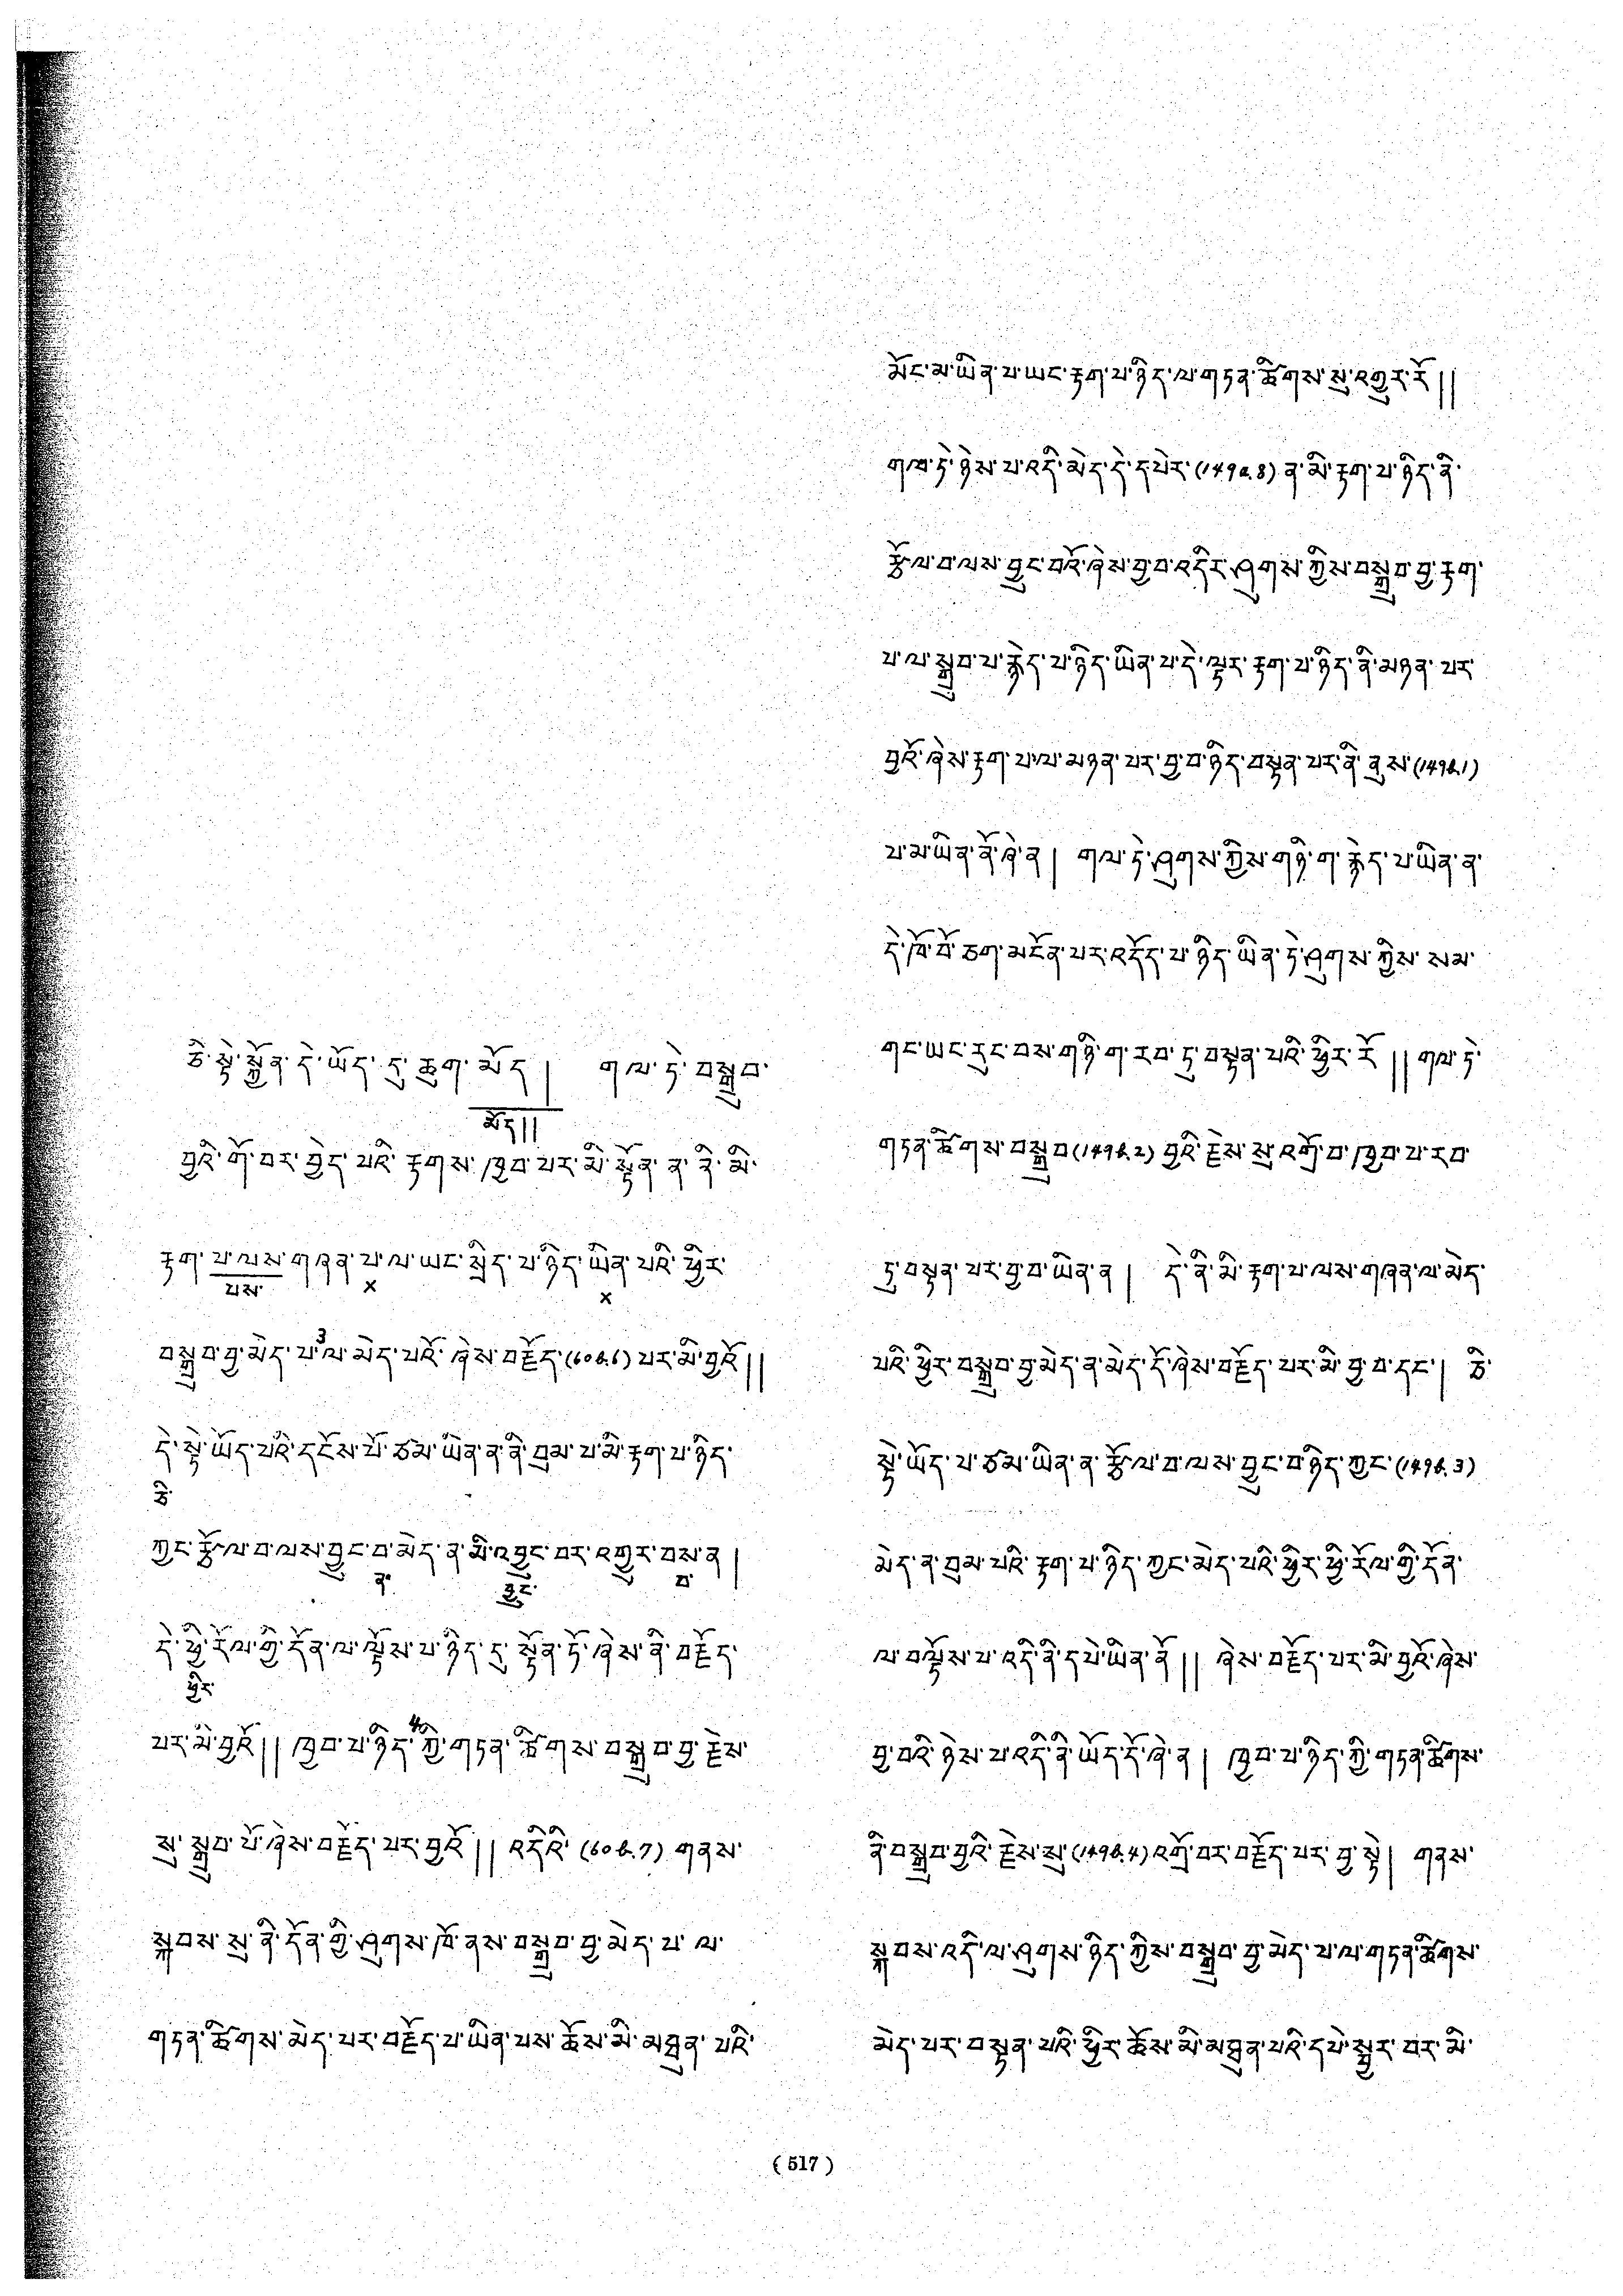 ཅི་སྟེ་སྐྱོན་དེ་ཡོད་དུ་ཆུག་མོད། གལ་ཏེ་བསྒྲུབ་
མོད༎
བྱའི་གོ་བར་བྱེད་པའི་རྟགས་ཁྱབ་པར་མི་སྟོན་ན་ནི་མི་
རྟག་པ་ལས་གཞན་པ་ལ་ཡང་སྲིད་པ་ཉིད་ཡིན་པའི་ཕྱིར་
པས་ x x
བསྒྲུབ་བྱ་མེད་པ་3ལ་མེད་པའོ་ཞེས་བརྗོད་(60b.6)པར་མི་བྱའོ༎
དེ་སྟེ་ཡོད་པའི་དངོས་པོ་ཙམ་ཡིན་ན་ནི་བུམ་པ་མི་རྟག་པ་ཉིད་
ཅི་
ཀྱང་རྩོལ་བ་ལས་བྱུང་བ་མེད་ན་མི་འབྱུང་བར་འགྱུར་བས་ན།
ན་ བྱུང་ བ་
དེ་ཕྱི་རོལ་གྱི་དོན་ལ་ལྟོས་པ་ཉིད་དུ་སྟོན་ཏོ་ཞེས་ནི་བརྗོད་
ཕྱིར་
པར་མི་བྱའོ༎ ཁྱབ་པ་ཉིད་4ཀྱི་གཏན་ཚིགས་བསྒྲུབ་བྱ་རྗེས་
སུ་སྒྲུབ་པོ་ཞེས་བརྗོད་པར་བྱའོ༎ འདིའི་(60b.7)གནས་
སྐབས་སུ་ནི་དོན་གྱི་ཤུགས་ཁོ་ནས་བསྒྲུབ་བྱ་མེད་པ་ལ་
གཏན་ཚིགས་མེད་པར་བརྗོད་པ་ཡིན་པས་ཆོས་མི་མཐུན་པའི་
མོང་མ་ཡིན་པ་ཡང་རྟག་པ་ཉིད་ལ་གཏན་ཚིགས་སུ་འགྱུར་རོ༎
གལ་ཏེ་ཉེས་པ་འདི་མེད་དེ་དཔེར་(149a.8)ན་མི་རྟག་པ་ཉིད་ནི་
རྩོལ་བ་ལས་བྱུང་བའོ་ཞེས་བྱ་བ་འདིར་ཤུགས་ཀྱིས་བསྒྲུབ་བྱ་རྟག་
པ་ལ་སྒྲུབ་པ་རྙེད་པ་ཉིད་ཡིན་པ་དེ་ལྟར་རྟག་པ་ཉིད་ནི་མཉན་པར་
བྱའོ་ཞེས་རྟག་པ་ལ་མཉན་པར་བྱ་བ་ཉིད་བསྟན་པར་ནི་ནུས་(149b.1)
པ་མ་ཡིན་ནོ་ཞེ་ན། གལ་ཏེ་ཤུགས་ཀྱིས་གཉི་ག་རྙེད་པ་ཡིན་ན་
དེ་ཁོ་བོ་ཅག་མངོན་པར་འདོད་པ་ཉིད་ཡིན་ཏེ་ཤུགས་ཀྱིས་སམ་
གང་ཡང་རུང་བས་གཉི་ག་རབ་ཏུ་བསྟན་པའི་ཕྱིར་རོ༎གལ་ཏེ་
གཏན་ཚིགས་བསྒྲུབ(149b.2)བྱའི་རྗེས་སུ་འགྲོ་བ་ཁྱབ་པ་རབ་
ཏུ་བསྟན་པར་བྱ་བ་ཡིན་ན། དེ་ནི་མི་རྟག་པ་ལས་གཞན་ལ་མེད་
པའི་ཕྱིར་བསྒྲུབ་བྱ་མེད་ན་མེད་དོ་ཞེས་བརྗོད་པར་མི་བྱ་བ་དང་། ཅི་
སྟེ་ཡོད་པ་ཙམ་ཡིན་ན་རྩོལ་བ་ལས་བྱུང་བ་ཉིད་ཀྱང་(149b.3)
མེད་ན་བུམ་པའི་རྟག་པ་ཉིད་ཀྱང་མེད་པའི་ཕྱིར་ཕྱི་རོལ་གྱི་དོན་
ལ་བལྟོས་པ་འདི་ནི་དཔེ་ཡིན་ནོ༎ ཞེས་བརྗོད་པར་མི་བྱའོ་ཞེས་
བྱ་བའི་ཉེས་པ་འདི་ནི་ཡོད་དོ་ཞེ་ན། ཁྱབ་པ་ཉིད་ཀྱི་གཏན་ཚིགས་
ནི་བསྒྲུབ་བྱའི་རྗེས་སུ་(149b.4)འགྲོ་བར་བརྗོད་པར་བྱ་སྟེ། གནས་
སྐབས་འདི་ལ་ཤུགས་ཉིད་ཀྱིས་བསྒྲུབ་བྱ་མེད་པ་ལ་གཏན་ཚིགས་
མེད་པར་བསྟན་པའི་ཕྱིར་ཆོས་མི་མཐུན་པའི་དཔེ་སྦྱར་བར་མི་
( 517 )